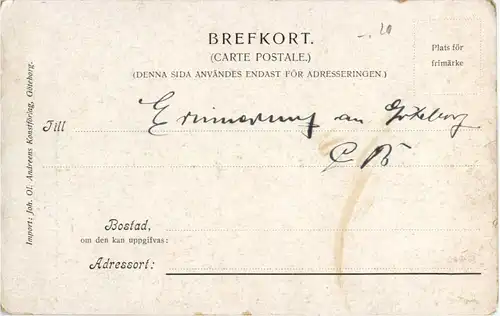 -. 20
BREFKORT.
(CARTE POSTALE.)
(DENNA SIDA ANVÄNDES ENDAST FÖR ADRESSERINGEN.)
Plats för
frimärke
Till Erinnerung an Göteborg
Bostad,
om den kan uppgifvas:
Adressort:
Import: Joh. Ol. Andreens Konstförlag, Göteborg.